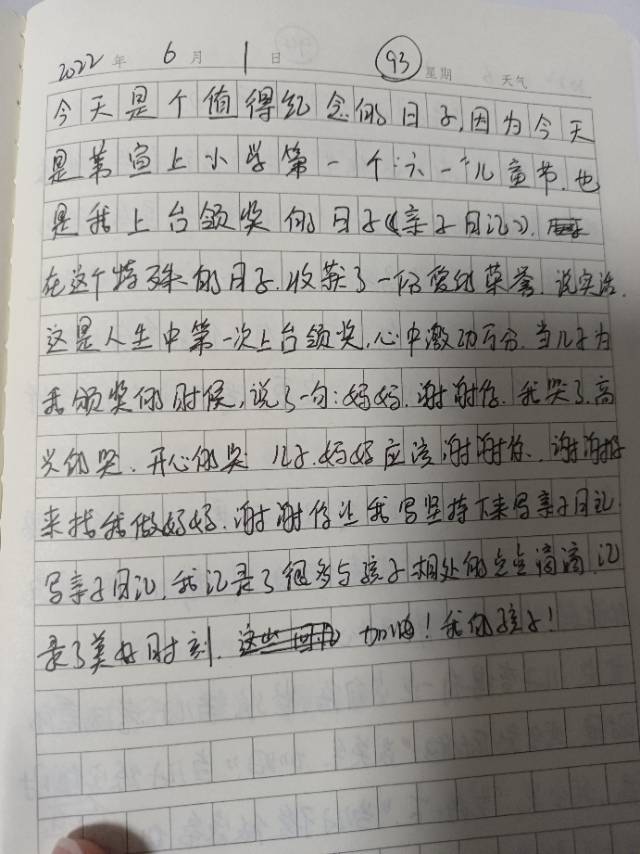 2022年 6月 1日 93 星期 天气
今天是个值得纪念的日子,因为今天
是第宣上小学第一个“六一”儿童节.也
是我上台领奖的日子(《亲子日记》).
在这个特殊的日子.收获了一份爱的荣誉.说实话.
这是人生中第一次上台领奖,心中激动万分.当儿子为
我颁奖的时候,说了一句:妈妈.谢谢你.我哭了.高
兴的哭.开心的哭 儿子.妈妈应该谢谢你.谢谢你
来找我做妈妈.谢谢你让我写坚持下来写亲子日记
写亲子日记,我记录了很多与孩子相处的点点滴滴,记
录了美好时刻. 加油!我的孩子!